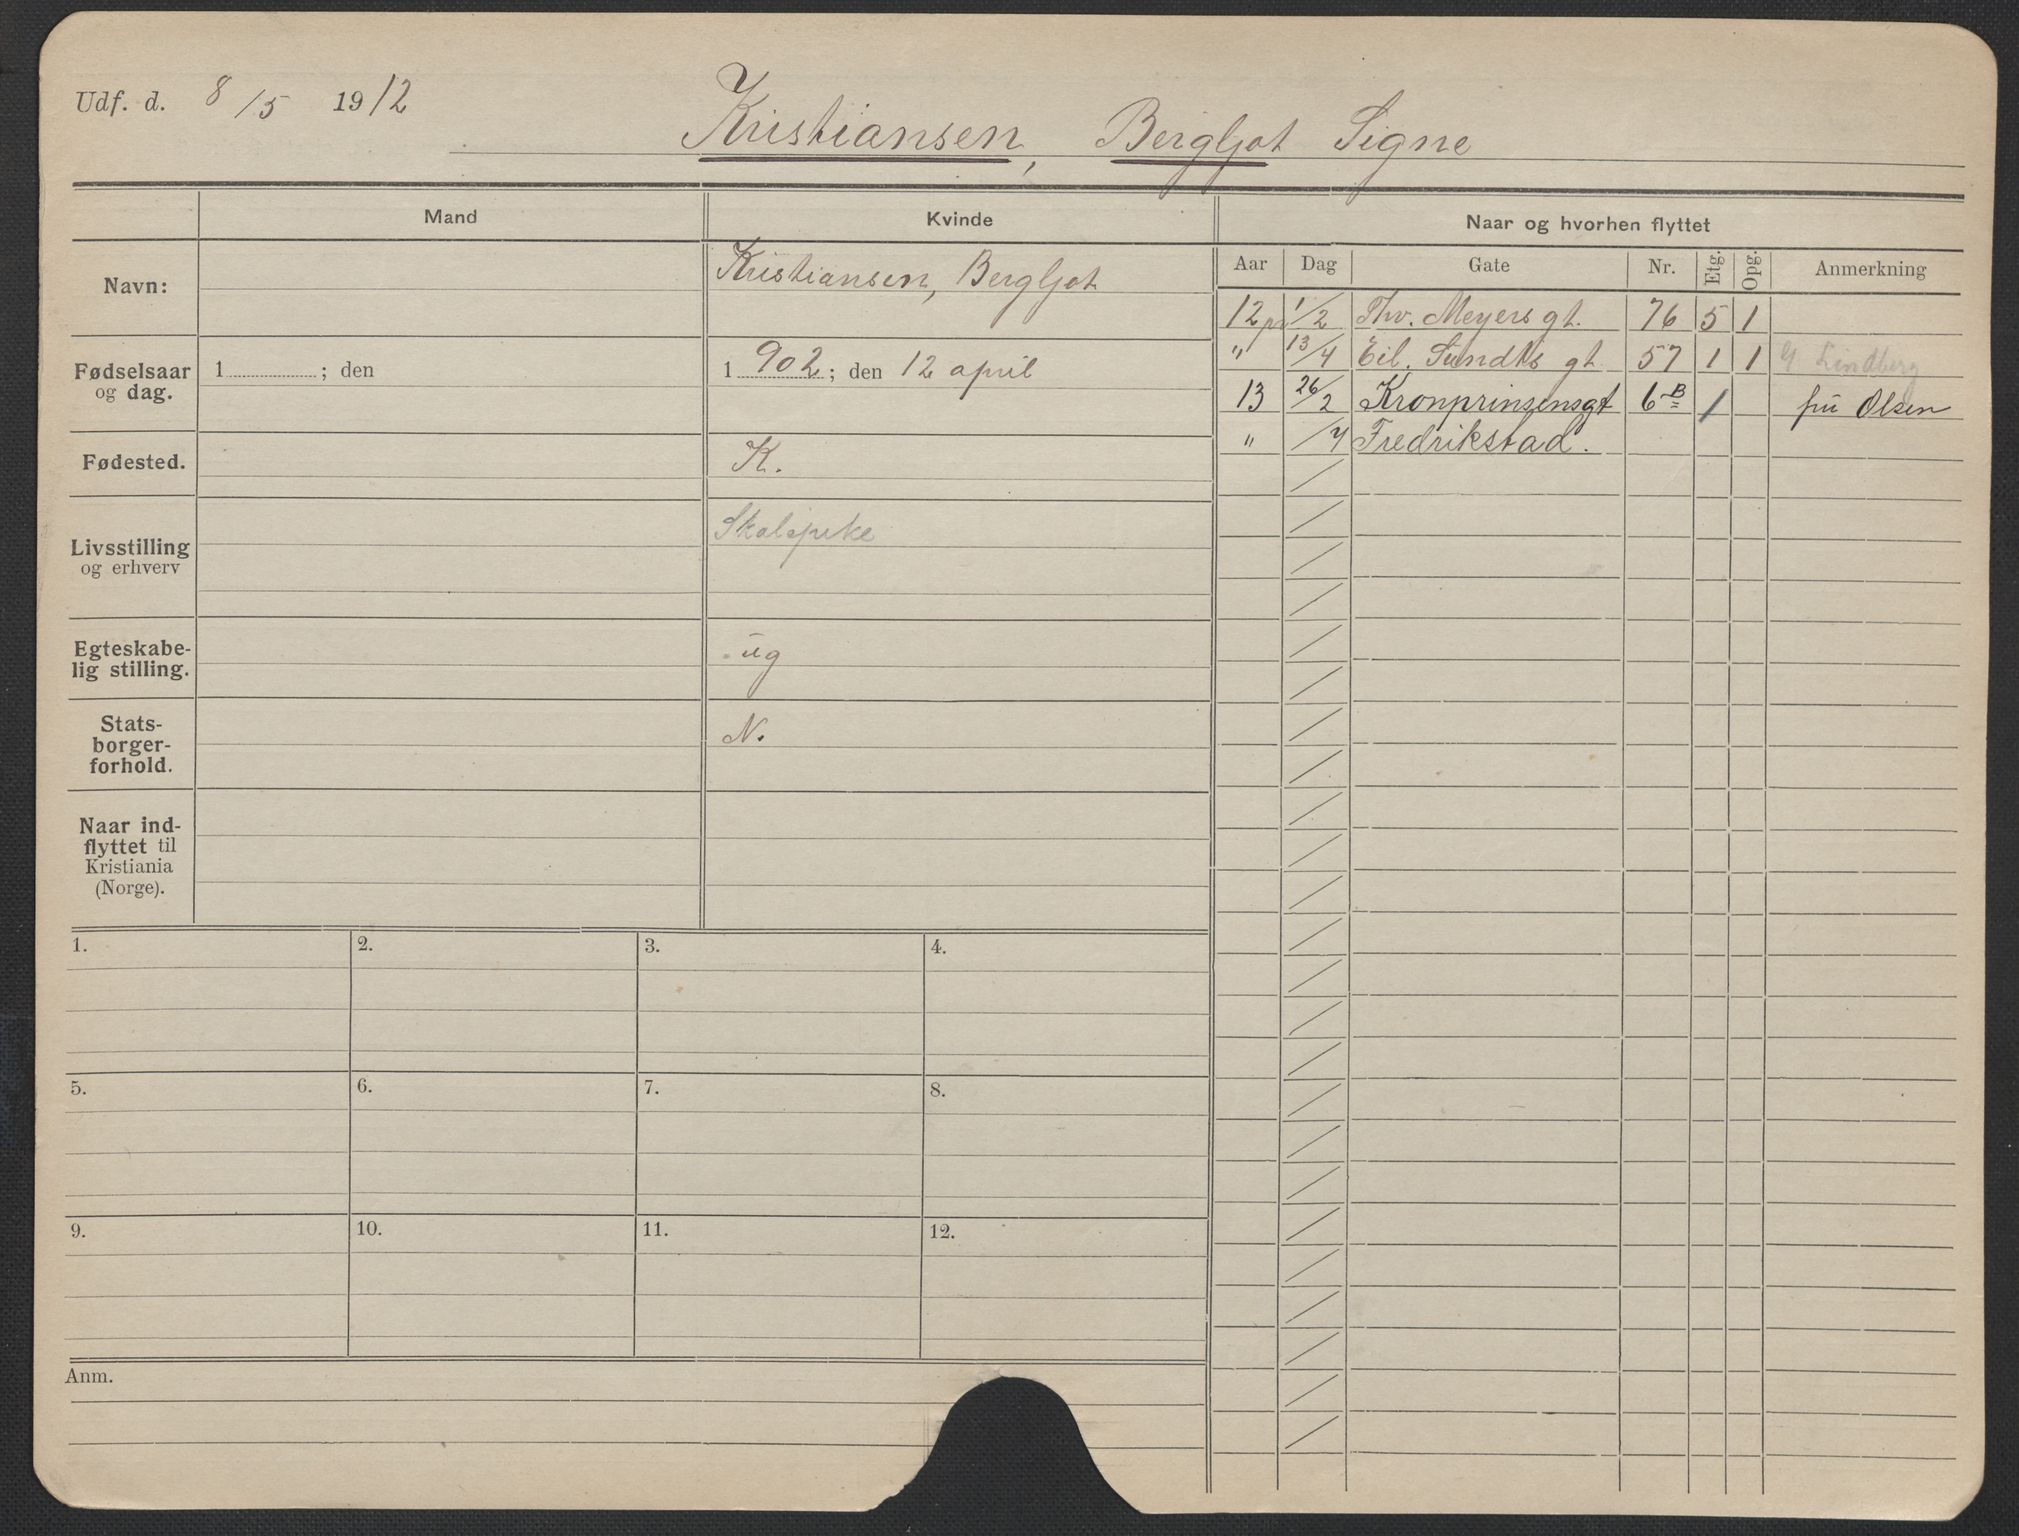 Udf. d. 8/5 1912
Kristiansen, Bergljot Signe
Mand Kvinde Naar og hvorhen flyttet
Navn: Kristiansen, Bergljot
Aar Dag Gate Nr. Etg. Opg. Anmerkning
12 pr 1/2 Thv. Meyers gt. 76 5 1
" 13/4 Eil. Sundts gt. 57 1 1 Lindberg
13 26/2 Kronprinsensgt 6B 1 frü Olsen
" /4 Fredrikstad.
Fødselsaar
og dag.
1 ; den
1 902 ; den 12 april
Fødested. K.
Livsstilling
og erhverv
Skolepike
Egteskabe-
lig stilling.
ug
Stats-
borger-
forhold.
N.
Naar ind-
flyttet til
Kristiania
(Norge).
1. 2. 3. 4.
5. 6. 7. 8.
9. 10. 11. 12.
Anm.